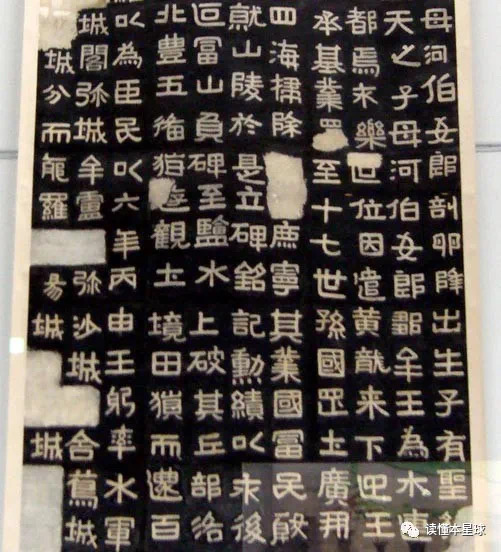 母河伯女郎剖卵降出生子有聖
天之子母河伯女郎鄒牟王為木連
都焉不樂世位因遣黃龍來下迎王
承基業至十七世孫國罡上廣開
四海掃除庶寧其業國富民殷
就山陵於是立碑銘記勳績以永後
叵富山負碑至鹽水上破其丘部洛
北豐五備猶遊觀土境田獵而還百
以為臣民以六年丙申王躬率水軍
城閣弥城牟盧弥沙城舍蔦城
城分而能羅昜城城
读懂本星球